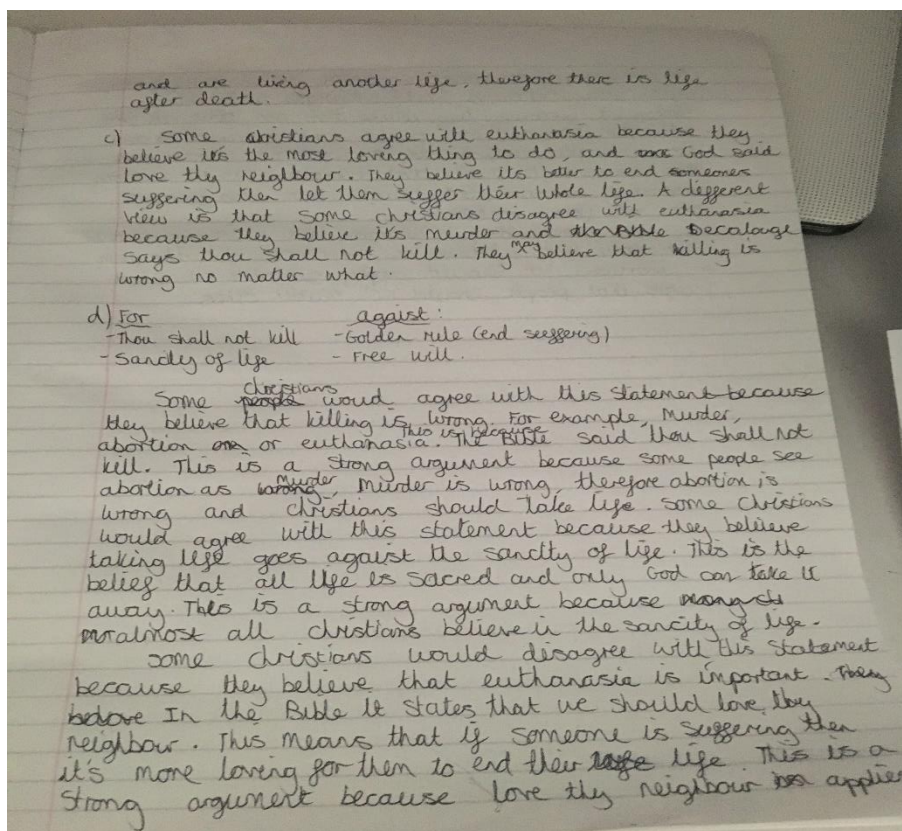 and are living another life, therefore there is life
after death.
c) Some christians agree with euthanasia because they
believe its the most loving thing to do, and God said
love thy neighbour. They believe its better to end someones
suffering then let them suffer their whole life. A different
view is that some christians disagree with euthanasia
because they believe its murder and the Decalouge
says thou shall not kill. They may believe that killing is
wrong no matter what.
d) For agaist:
- Thou shall not kill - Golden rule (end suffering)
- Sancity of life - Free will.
Some christians woud agree with this statement because
they believe that killing is wrong. For example, Murder,
abortion or euthanasia. This is because The Bible said thou shall not
kill. This is a strong argument because some people see
abortion as Murder, Murder is wrong, therefore abortion is
wrong and christians should take life. Some Christians
would agree with this statement because they believe
taking life goes agaist the sanctity of life. This is the
belief that all life is sacred and only God can take it
away. This is a strong argument because
almost all christians believe in the sancity of life.
Some christians would disagree with this statement
because they believe that euthanasia is important.
In the Bible it states that we should love thy
neighbour. This means that if someone is suffering then
it's more loving for them to end their life. This is a
strong argument because love thy neighbour applies